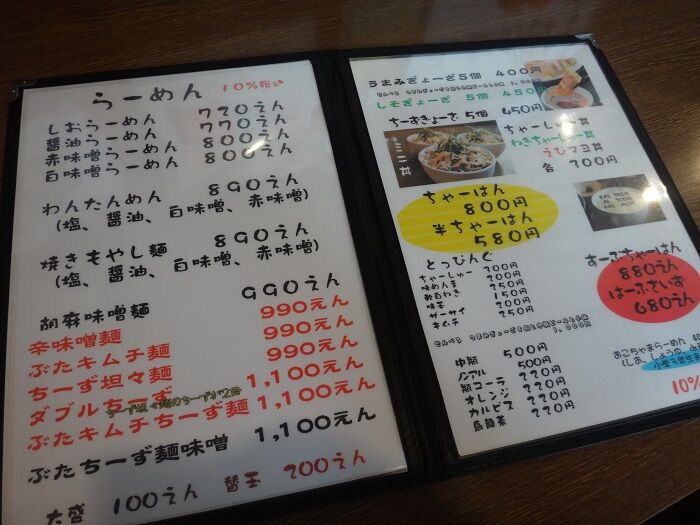 らーめん 10%税込
しおらーめん 720えん
醬油らーめん 770えん
赤味噌らーめん 800えん
白味噌らーめん 800えん
わんたんめん 890えん
(塩、醬油、白味噌、赤味噌)
焼きもやし麺 890えん
(塩、醬油、白味噌、赤味噌)
胡麻味噌麺 990えん
辛味噌麺 990えん
ぶたキムチ麺 990えん
ちーず坦々麺 990えん
ダブルちーず 1,100えん
ぶたキムチちーず麺 1,100えん
ぶたちーず麺味噌 1,100えん
大盛 100えん 替玉 200えん
うまみぎょーざ5個 400円
しそぎょーざ 5個 450円
ちーずぎょーざ 5個 450円
ミニ丼
ちゃーしゅー丼
ねぎちゃーしゅー丼
えびマヨ丼
各 300円
ちゃーはん
800円
半ちゃーはん
580円
すーぷちゃーはん
880えん
はーふさいず
680えん
とっぴんぐ
ちゃーしゅー 300円
味めんま 200円
250円
味玉 150円
ザーサイ 200円
キムチ 250円
中瓶 500円
ノンアル 500円
瓶コーラ 220円
オレンジ 220円
カルピス 220円
烏龍茶 220円
おこちゃまらーめん
(しお、しょうゆ、み
小学3年生
10%